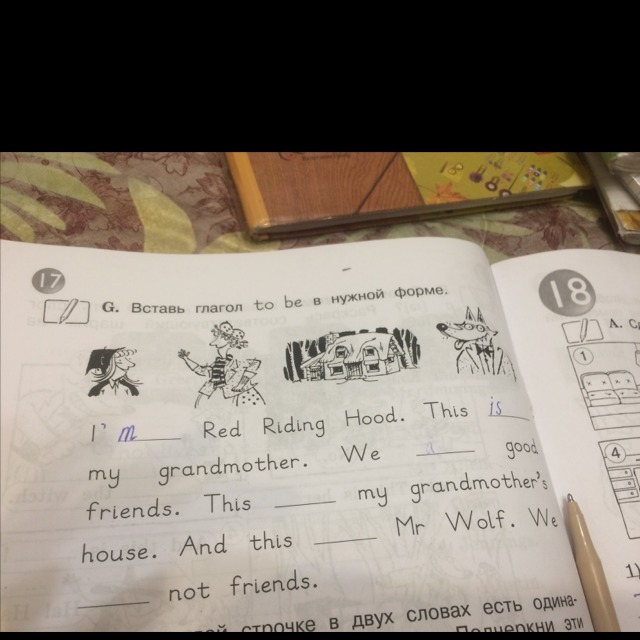 17
G. Вставь глагол to be в нужной форме.
I'm Red Riding Hood. This is
my grandmother. We a good
friends. This ____ my grandmother's
house. And this ____ Mr Wolf. We
____ not friends.
строчке в двух словах есть одина-
Подчеркни эти
18
A.
1
4
1)